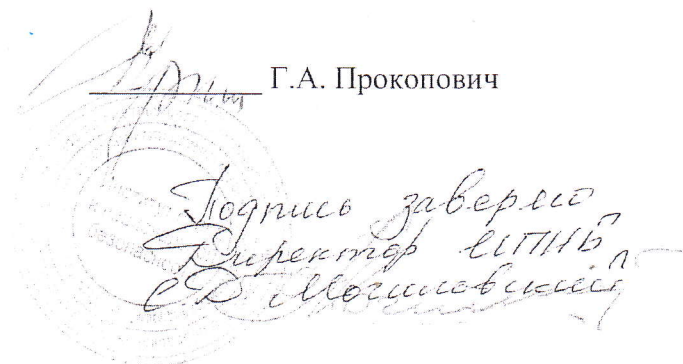 Г.А. Прокопович
Подпись заверяю
Директор ИПНБ
С.Д. Могилевский